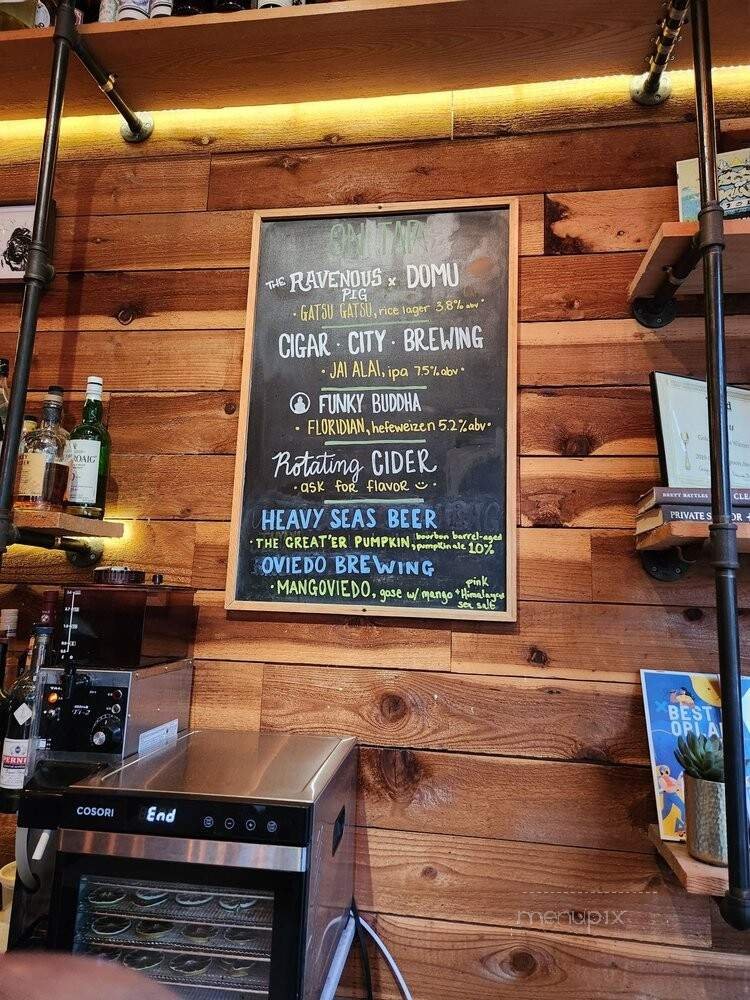 ON TAP
THE RAVENOUS x DOMU
PIG
• GATSU GATSU, rice lager 3.8% abv •
CIGAR • CITY • BREWING
• JAI ALAI, ipa 7.5% abv •
FUNKY BUDDHA
• FLORIDIAN, hefeweizen 5.2% abv •
Rotating CIDER
• ask for flavor ☺
HEAVY SEAS BEER
• THE GREAT'ER PUMPKIN, bourbon barrel-aged
pumpkin ale 10%
OVIEDO BREWING
• MANGOVIEDO, gose w/ mango + pink
Himalayan
sea salt
BRETT BATTLES
PRIVATE
BEST
COSORI
End
menupix